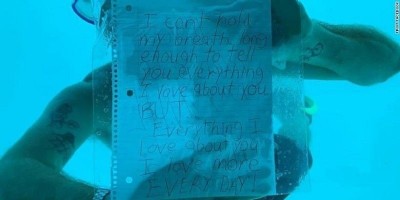 I can't hold
my breath long
enough to tell
you Everything
I love about you
BUT
Everything I
Love about you
I Love more
EVERY DAY!